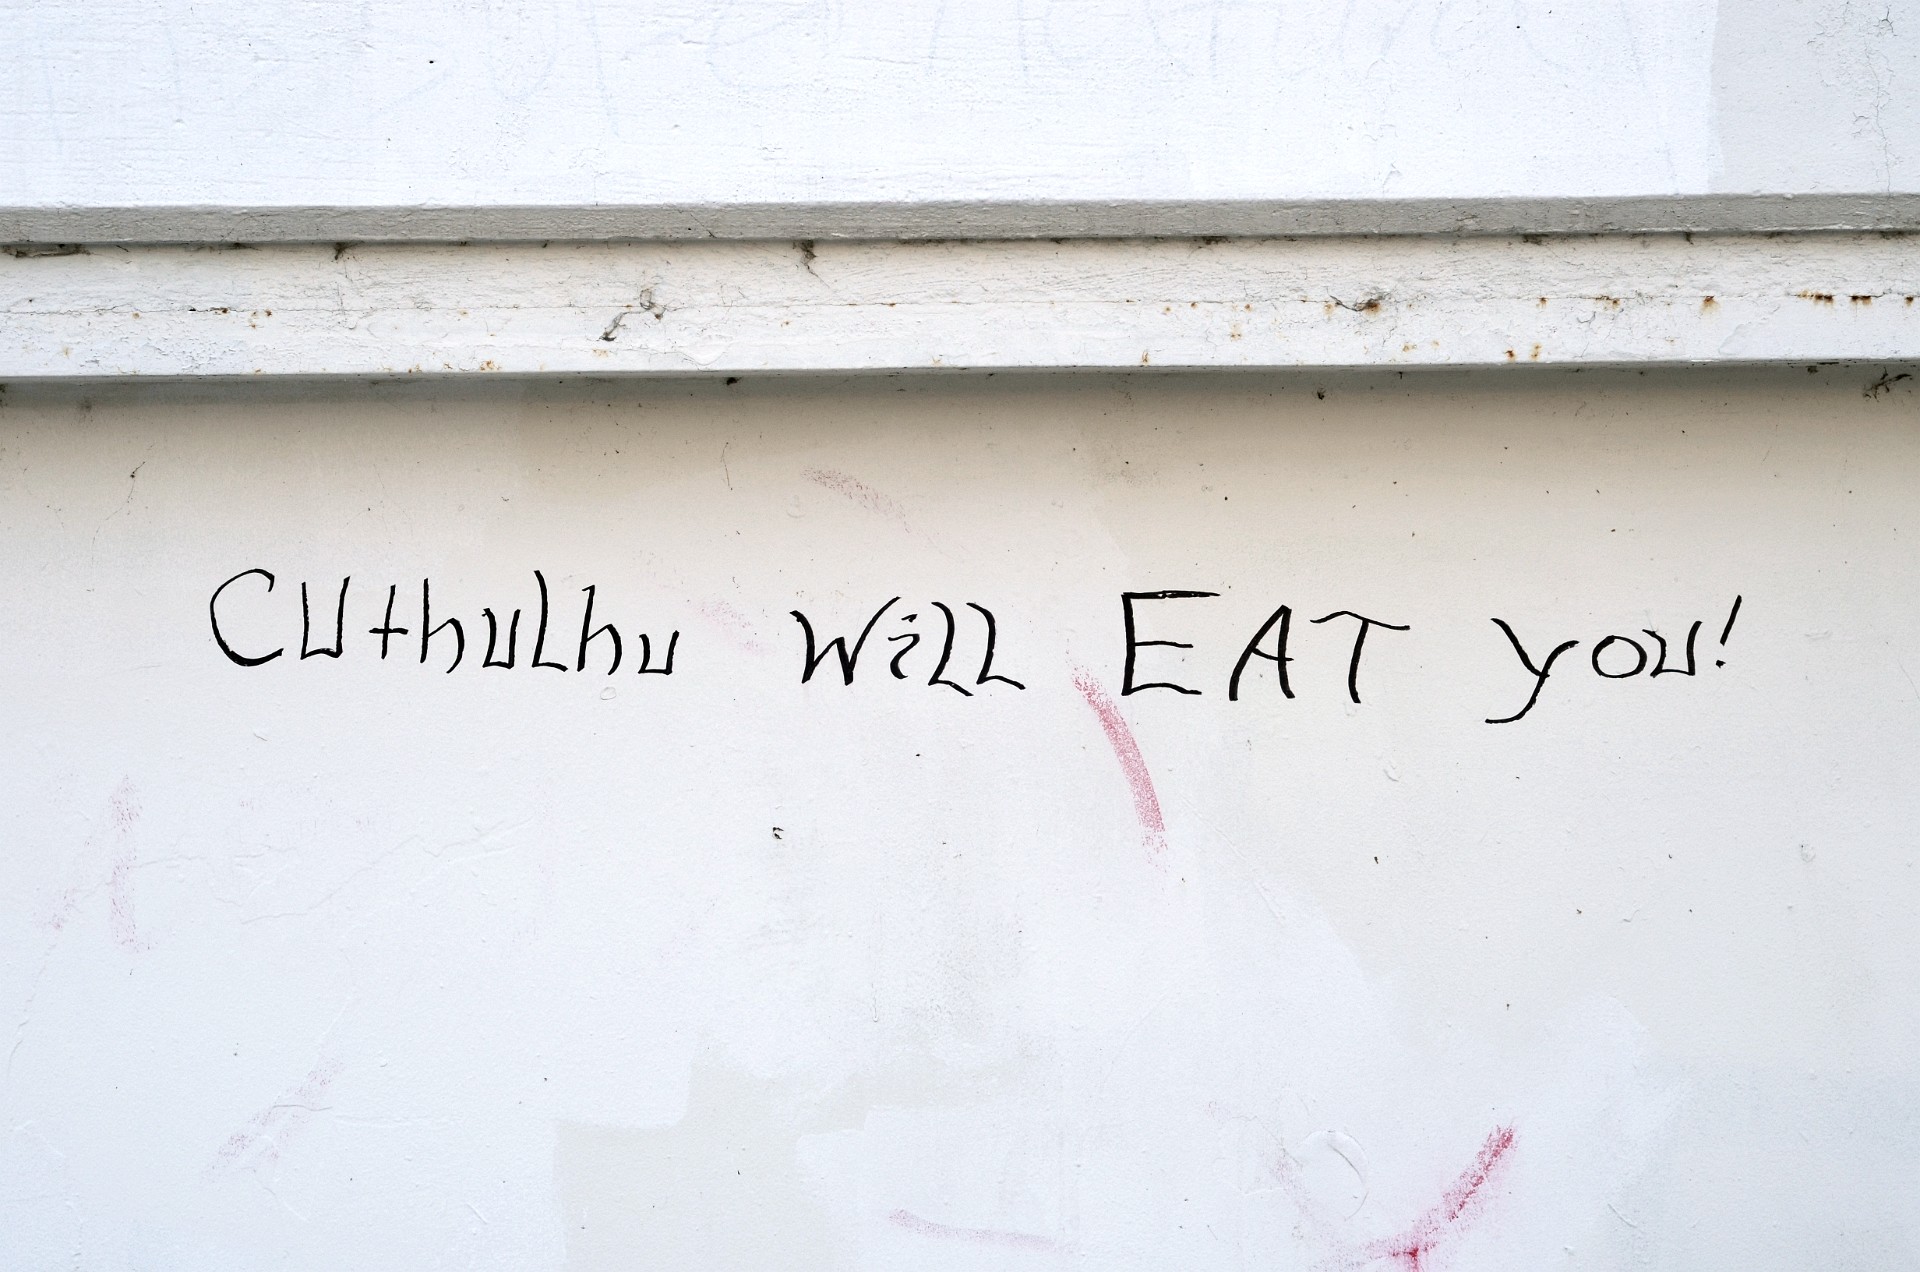 CUthulhu Will EAT you!